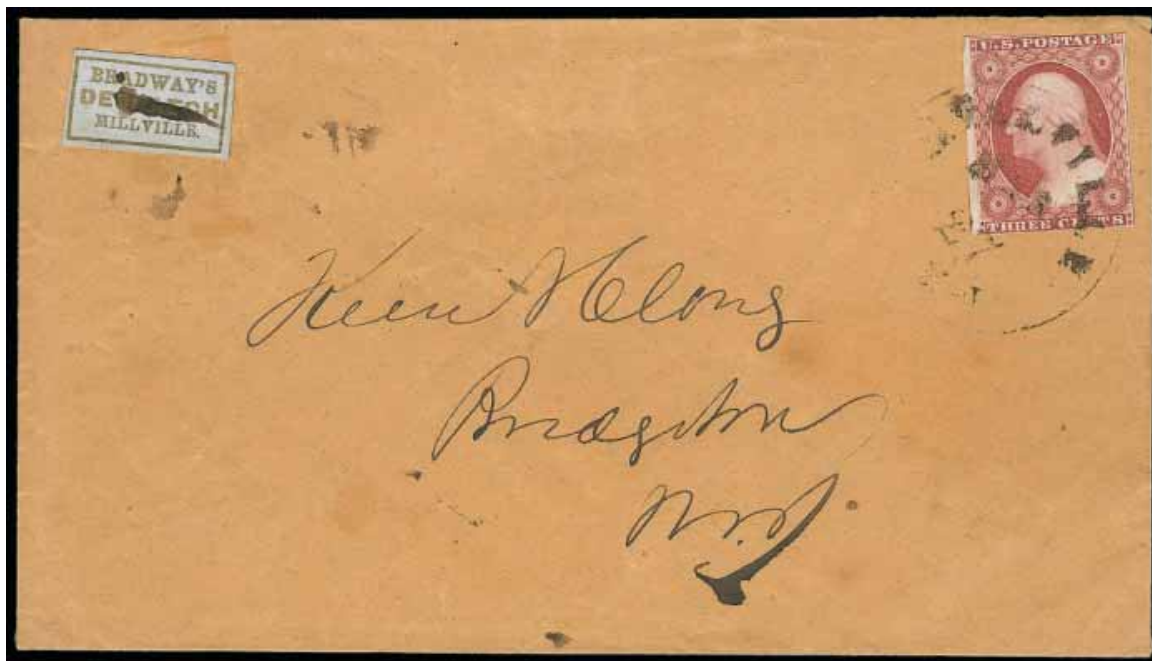 BRADWAY'S
DESPATCH
MILLVILLE.
U.S. POSTAGE
THREE CENTS
Keen
Bridgeton
N.J.